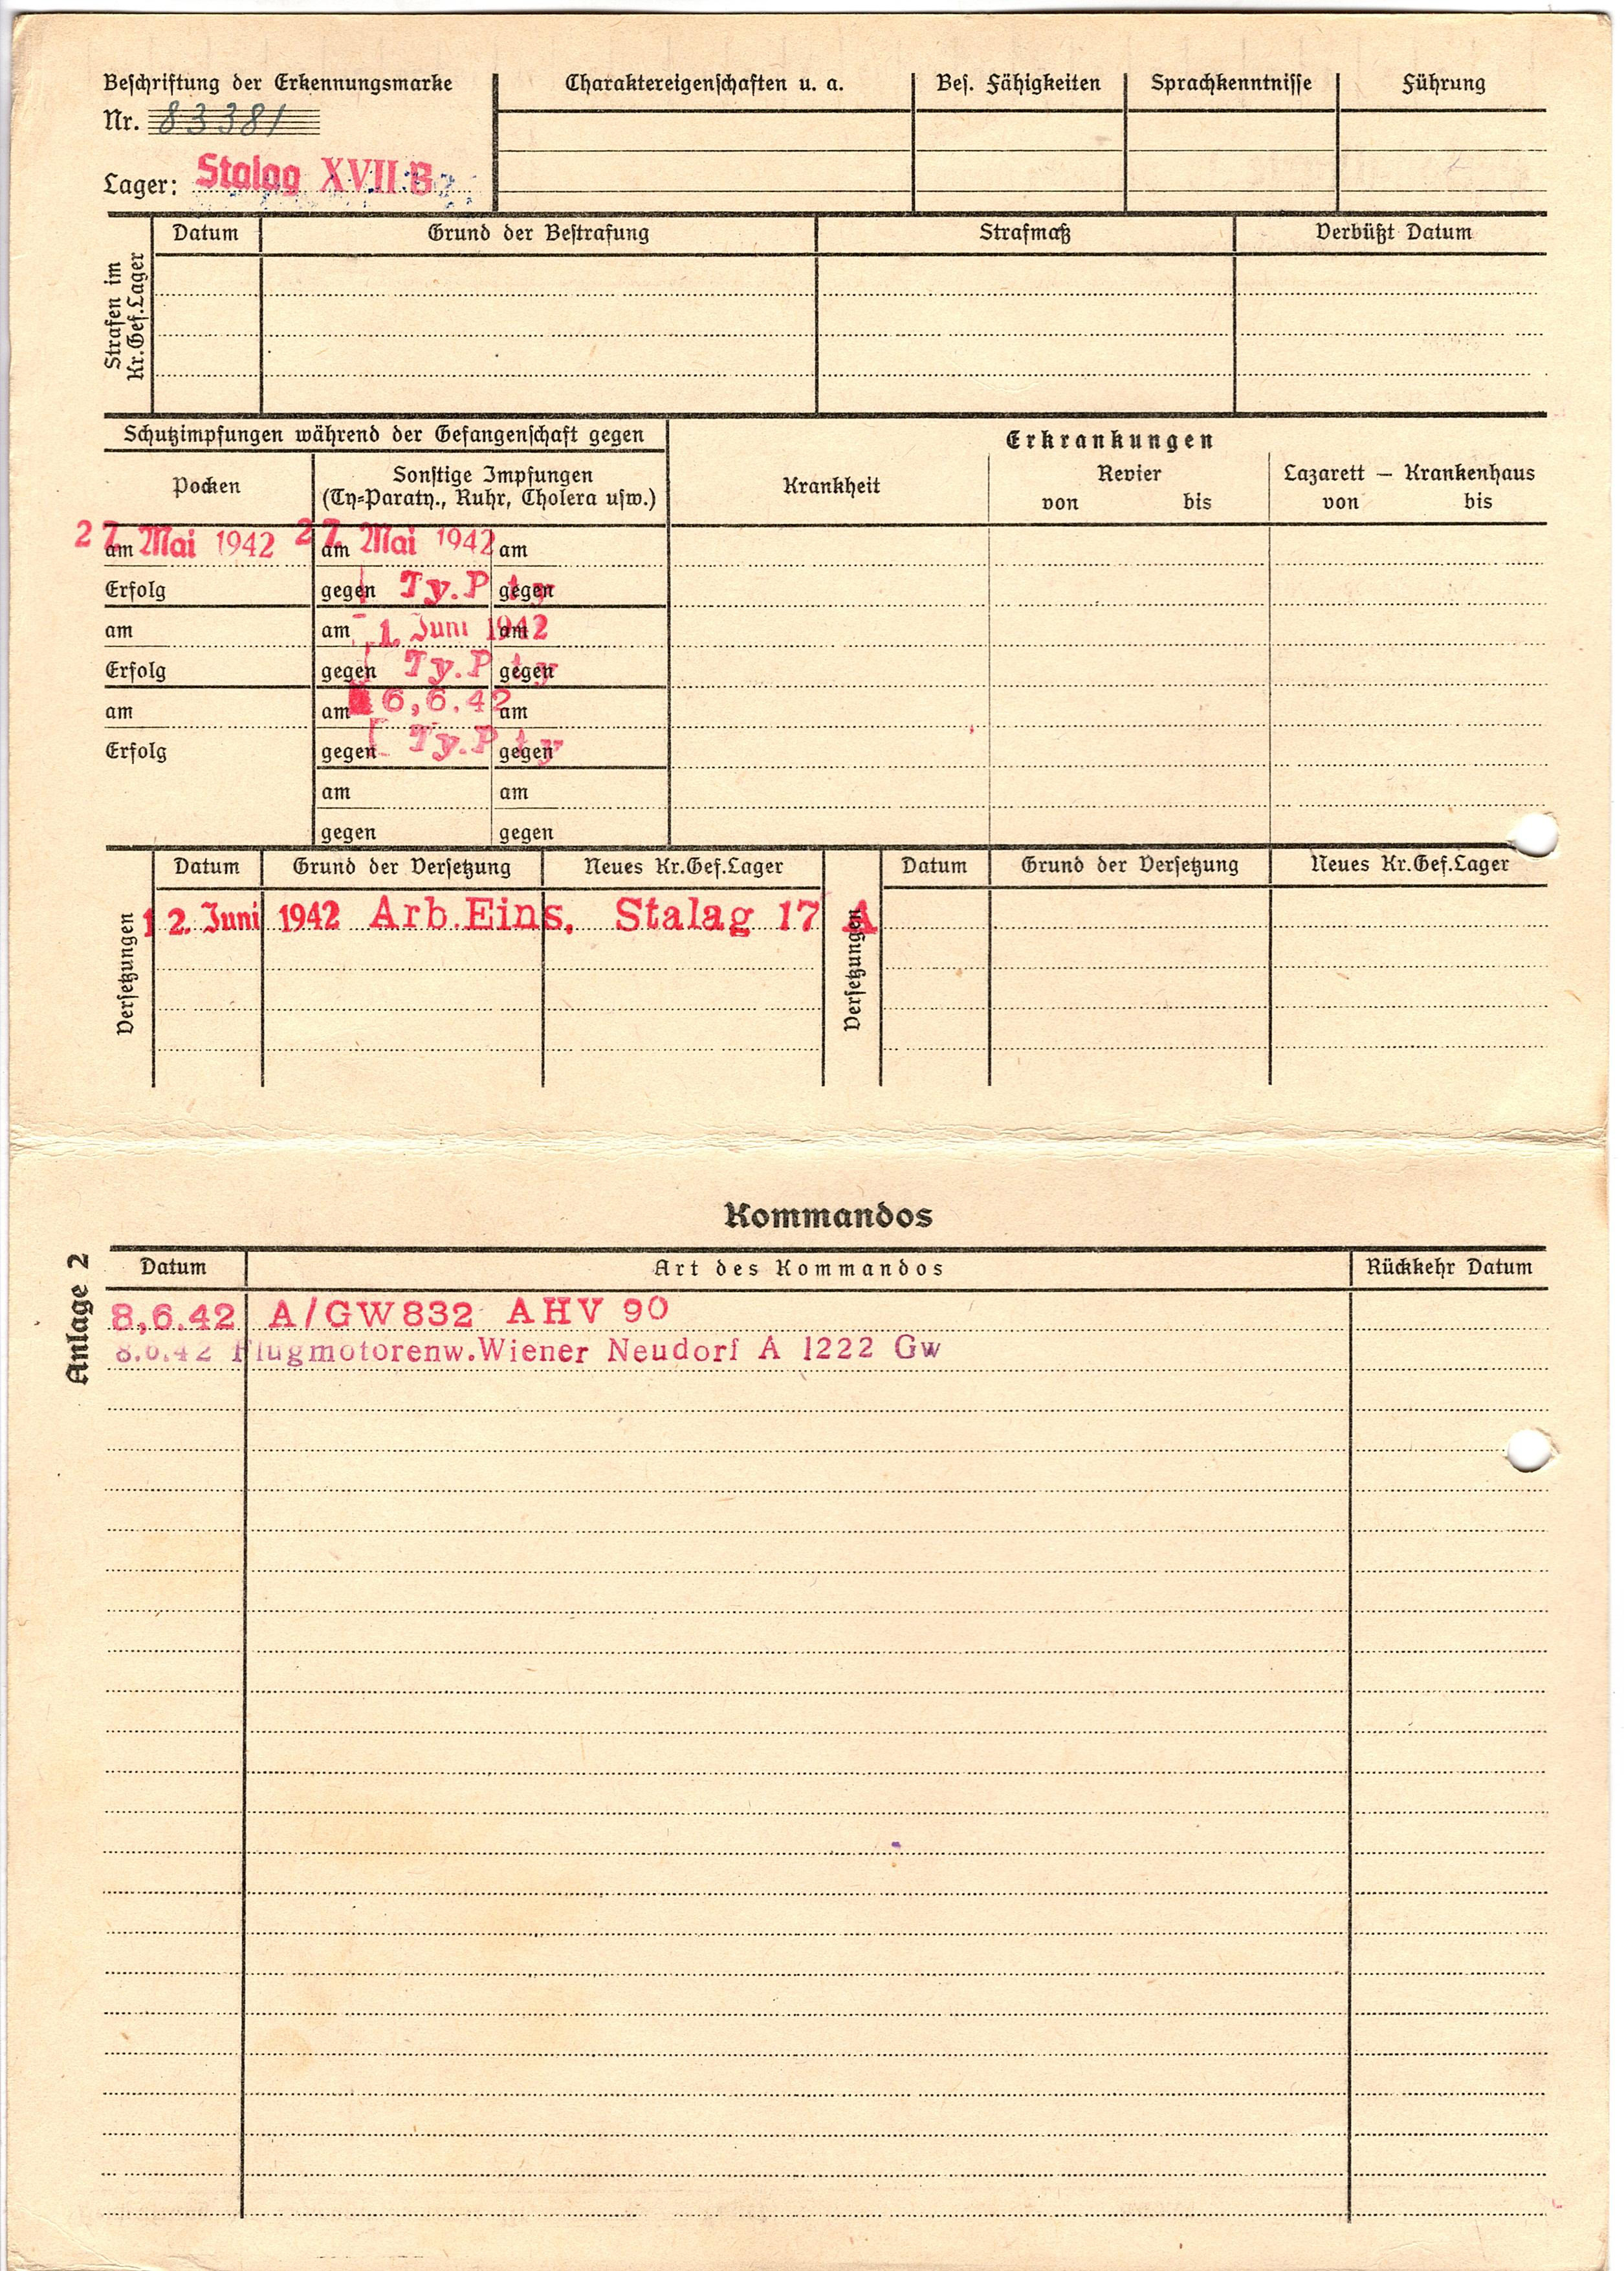 Beschriftung der Erkennungsmarke
Nr. 83381
Lager: Stalag XVII B
Charaktereigenschaften u. a.
Bes. Fähigkeiten
Sprachkenntnisse
Führung
Strafen im
Kr.Gef.Lager
Datum
Grund der Bestrafung
Strafmaß
Verbüßt Datum
Schutzimpfungen während der Gefangenschaft gegen
Erkrankungen
Pocken
Sonstige Impfungen
(Ty=Paraty., Ruhr, Cholera usw.)
Krankheit
Revier
von bis
Lazarett — Krankenhaus
von bis
am 27. Mai 1942 am 27. Mai 1942 am
Erfolg gegen Ty.P ty gegen
am am 1. Juni 1942 am
Erfolg gegen Ty.P ty gegen
am am 6,6.42 am
Erfolg gegen Ty.P ty gegen
am am
gegen gegen
Versetzungen
Datum Grund der Versetzung Neues Kr.Gef.Lager
12. Juni 1942 Arb.Eins. Stalag 17 A
Versetzungen
Datum Grund der Versetzung Neues Kr.Gef.Lager
Anlage 2
Kommandos
Datum Art des Kommandos Rückkehr Datum
8,6.42 A/GW832 AHV 90
8.6.42 Flugmotorenw.Wiener Neudorf A 1222 Gw